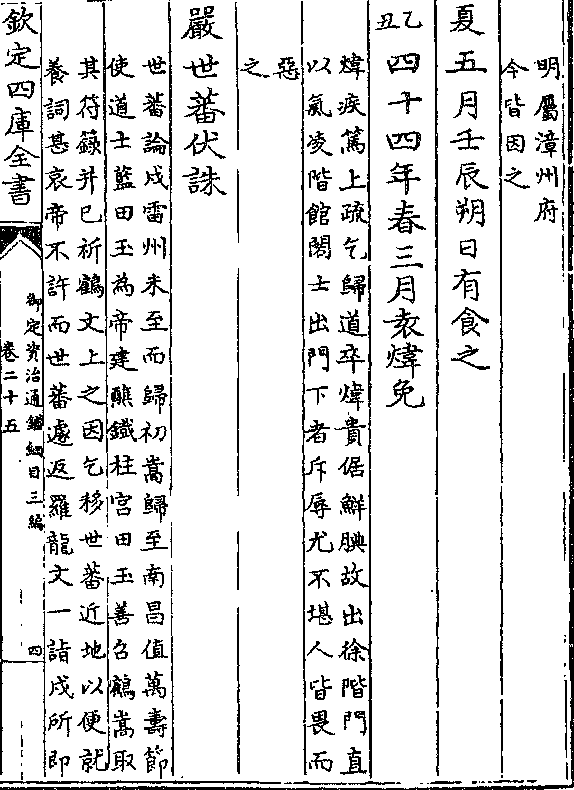 明屬漳州府
今皆因之
夏五月壬辰朔日有食之
乙丑四十四年春三月袁煒免
煒疾篤上疏乞歸道卒煒貴倨鮮腆故出徐階門直
以氣凌階館閣士出門下者斥辱尤不堪人皆畏而
惡
之
嚴世蕃伏誅
世蕃論戍雷州未至而歸初嵩歸至南昌值萬壽節
使道士藍田玉為帝建醮鐵柱宫田玉善召鶴嵩取
其符籙并已祈鶴文上之因乞移世蕃近地以便就
養詞甚哀帝不許而世蕃遽返羅龍文一詣戍所即
欽定四庫全書
御定資治通鑑綱目三編
卷二十五
四